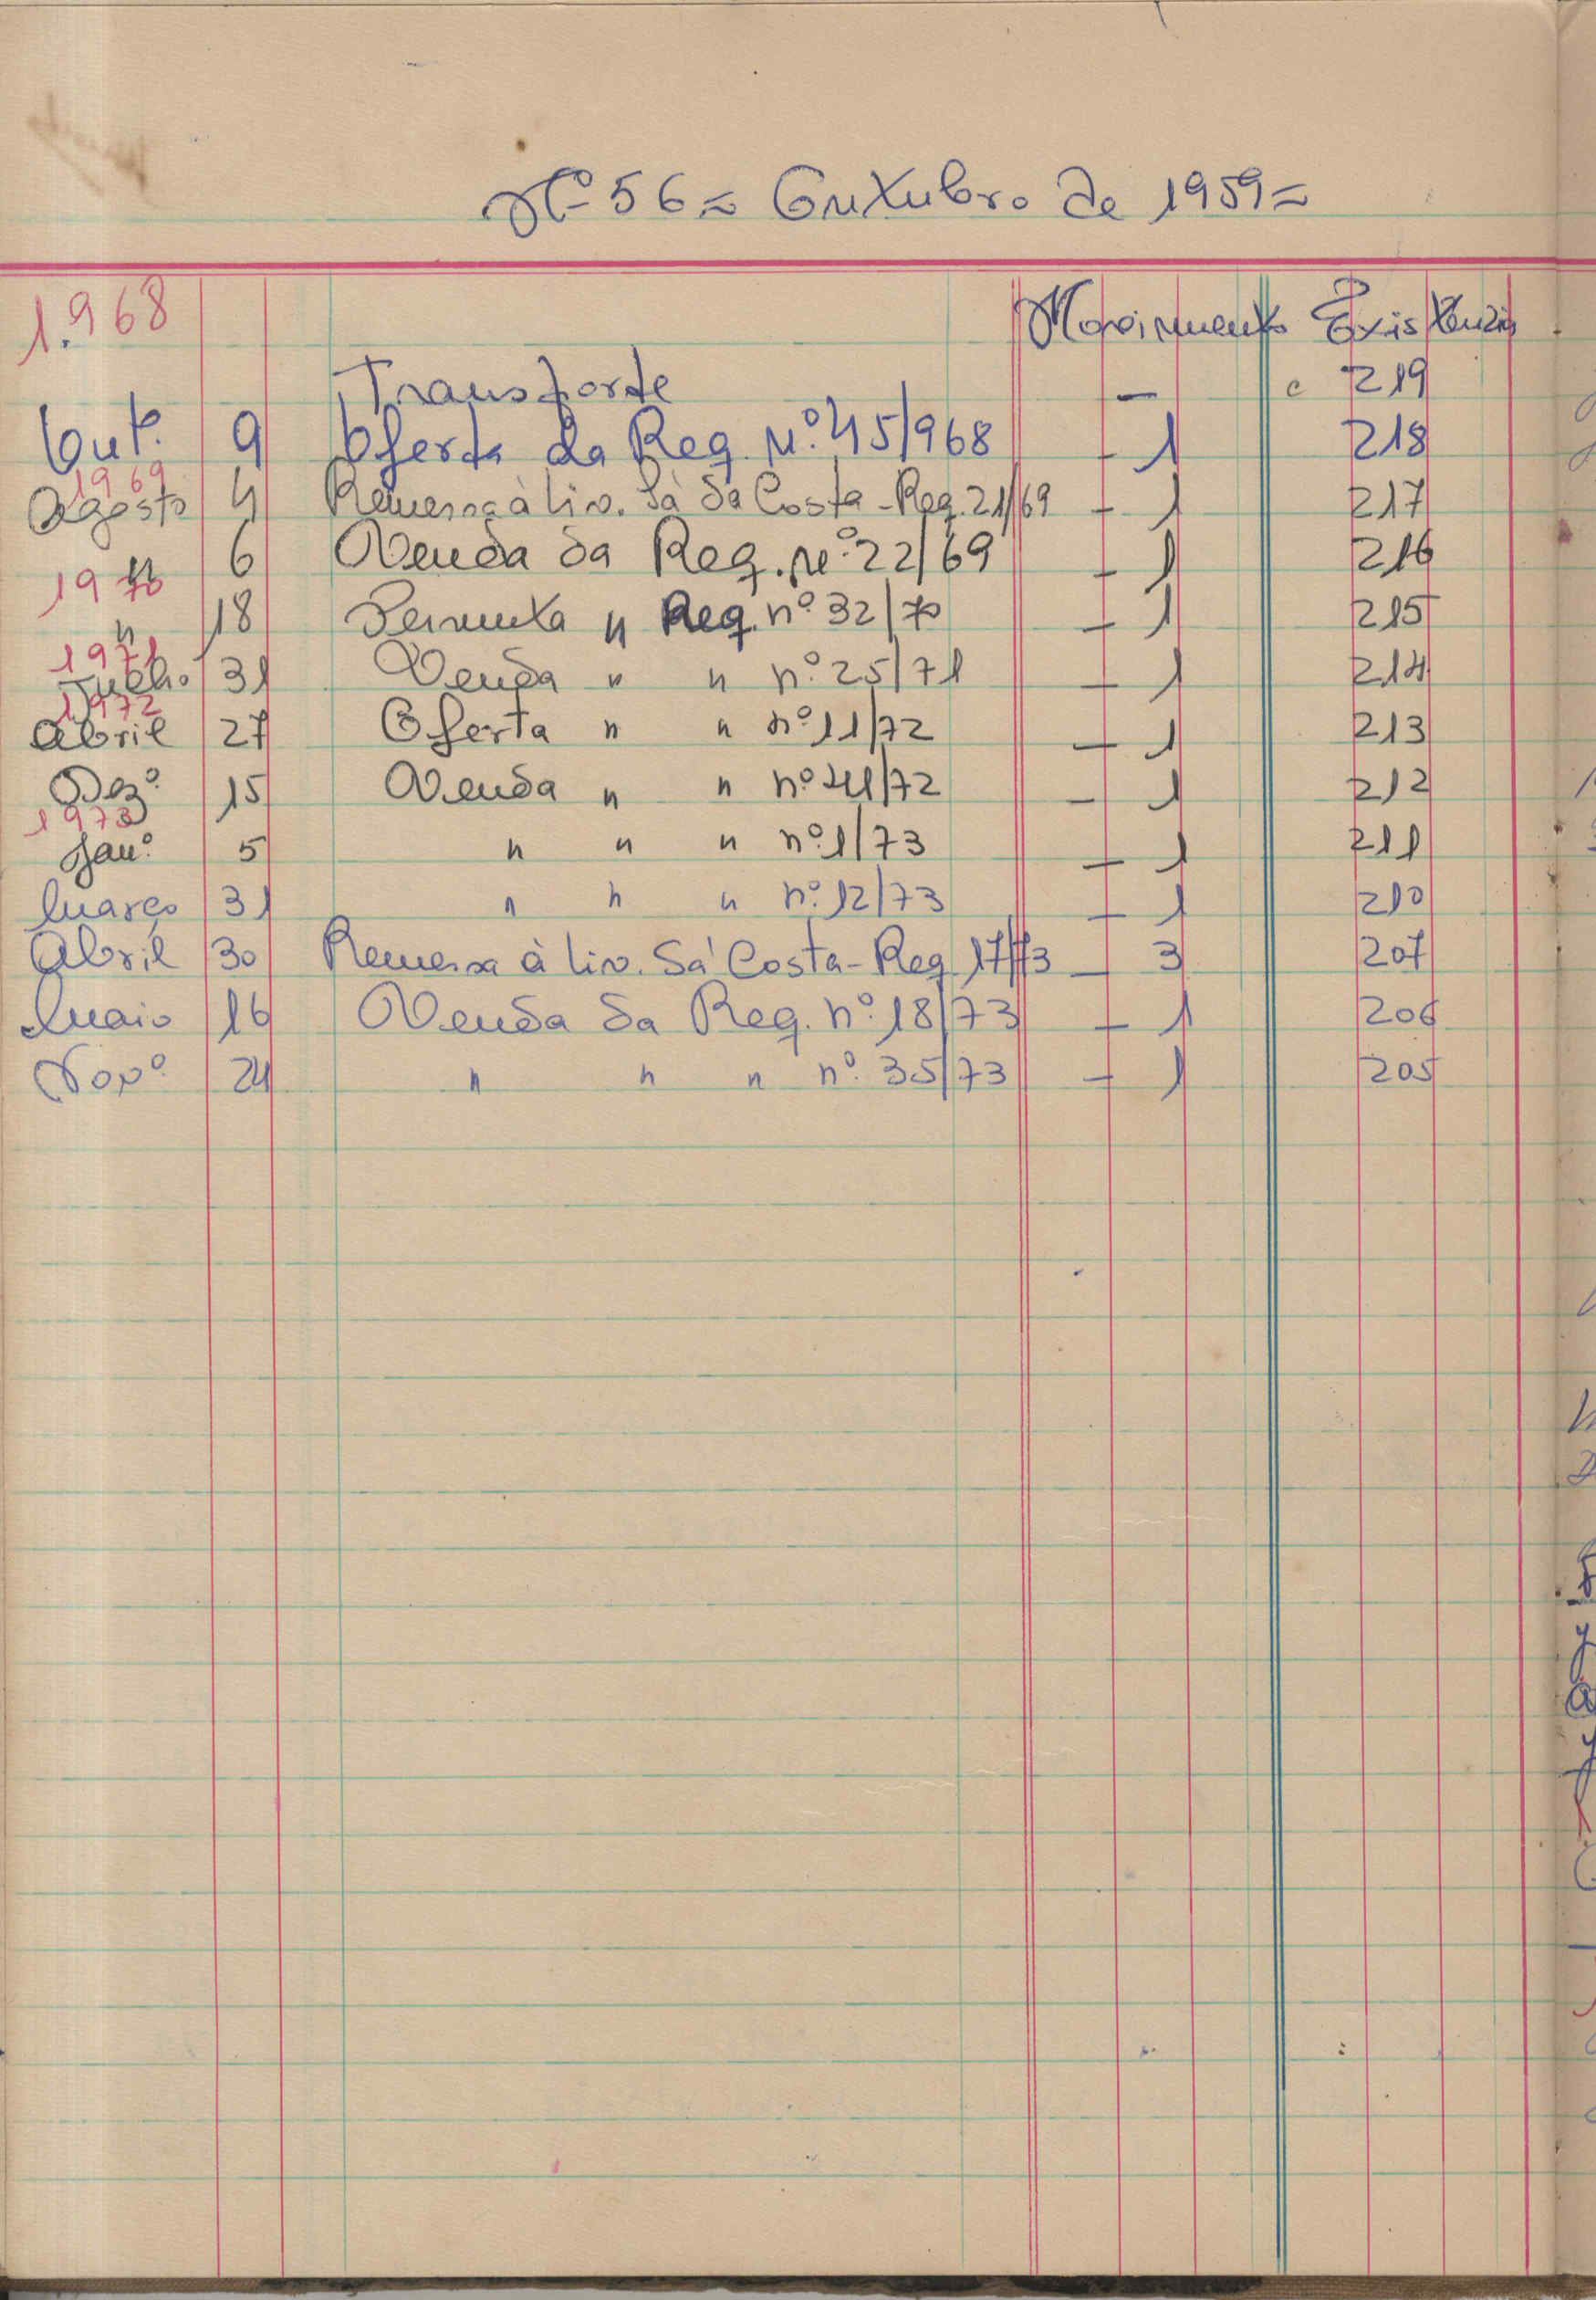 Nº 56 = Outubro de 1959 =
1.968 Movimento Existência
Transporte — 219
Out. 9 Oferta da Req. Nº 45/968 - 1 218
1969
Agosto 4 Remessa à Liv. Sá da Costa - Req. 21/69 - 1 217
" 6 Venda da Req. Nº 22/69 - 1 216
1970
" 18 Permuta " Req. nº 32/70 - 1 215
1971
Julho 31 Venda " " nº 25/71 - 1 214
1972
Abril 27 Oferta " " nº 11/72 - 1 213
Dezº 15 Venda " " nº 41/72 - 1 212
1973
Janº 5 " " " nº 1/73 - 1 211
Março 31 " " " nº 12/73 - 1 210
Abril 30 Remessa à Liv. Sá Costa - Req. 17/73 - 3 207
Maio 16 Venda da Req. nº 18/73 - 1 206
Novº 24 " " " nº 35/73 - 1 205